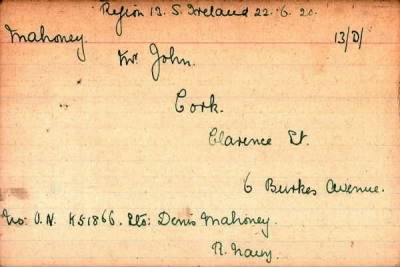 Region 13. S. Ireland 22.6.20.
Mahoney. 13/D/
Mr John.
Cork.
Clarence St.
6 Burkes Avenue.
No: O.N. K51866. Sto: Denis Mahoney.
R. Navy.